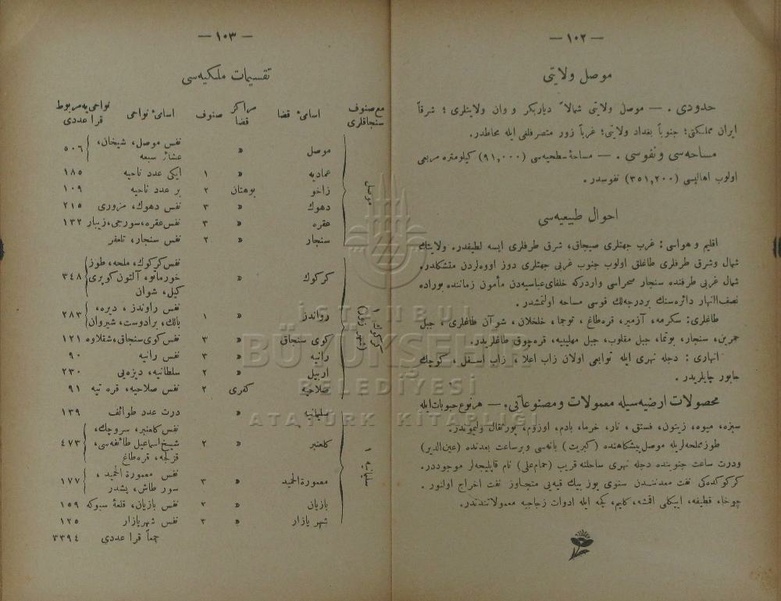 — ١٠٢ —
موصل ولايتى
حدودى . — موصل ولايتى شمالاً دياربكر و وان ولايتلرى ؛ شرقاً
ايران مملكتى؛ جنوباً بغداد ولايتى؛ غرباً زور متصرفلغى ايله محاطدر.
مساحه‌سى ونفوسى . — مساحهٔ سطحيه‌سى (٩١,٠٠٠) كيلومتره مربعى
اولوب اهاليسى (٣٥١,٢٠٠) نفوسدر.
احوال طبيعيه‌سى
اقليم و هواسى: غرب جهتلرى صيجاق، شرق طرفلرى ايسه لطيفدر. ولايتك
شمال وشرق طرفلرى طاغلق اولوب جنوب غربى جهتلرى دوز اووه‌لردن متشكلدر.
شمال غربى طرفنده سنجار صحراسى واردركه خلفاى عباسيه‌دن مأمون زماننده بوراده
نصف‌النهار دائره‌سنك بردرجه‌لك قوسى مساحه اولنمشدر.
طاغلرى: سكرمه، آزمير، قره‌طاغ، خلخلان، شوآن طاغلرى، جبل
حمرين، سنجار، جبل مقلوب، قره‌چوق طاغلريدر.
انهارى : دجله نهرى ايله توابعى اولان زاب اعلا ، زاب اسفل ، كوچك
خابور چايلريدر.
محصولات ارضيه‌سيله معمولات ومصنوعاتى. — هرنوع حبوبات ايله
سبزه، ميوه، زيتون، فستق ، نار، خرما، بادم، اوزوم، پورتقال وليموندر.
طوزمملحه‌لريله موصل پيشكاهنده (كبريت) وبرساعت بعدنده (عين‌الدير)
ودرت ساعت جنوبنده دجله نهرى ساحلنه قريب (حمام‌على) نام قاپليجه‌لر موجوددر.
كركوكده‌كى نفت معدنندن سنوى يوز بيك قيه‌يى متجاوز نفت اخراج اولنور .
چوخا، قطيفه، ايپكلى اقمشه، كليم، كچه ايله ادوات زجاجيه معمولاتندندر.
— ١٠٣ —
تقسيمات ملكيه‌سى
مع صنوف سنجاقلرى اسامىٔ قضا مراكز قضا صنوف اسامىٔ نواحى نواحى‌يه مربوط قرا عددى
موصل
موصل » نفس موصل، شيخان، عشائر سبعه ٥٠٦
عماديه » ١ ايكى عدد ناحيه ١٨٥
زاخو بوهتان ٢ بر عدد ناحيه ١٠٩
دهوك » ٣ نفس دهوك، مزورى ٢١٥
عقره » ٣ نفس عقره، سورجى، زيبار ١٣٢
سنجار » ٢ نفس سنجار، تلعفر
كركوك (شهرزول)
كركوك » نفس كركوك، ملحه، طوز خورماتو، آلتون كوپرى كيل، شوان ٣٤٨
رواندز » ١ نفس راوندز ، ديره، بالك، برادوست، شيروان ٢٨٣
كوى سنجاق » ٣ نفس كوى‌سنجاق، شقلاوه ١٢١
رانيه » ٣ نفس رانيه ٩٠
اربيل » ٢ سلطانيه، ديزه‌يى ٢٣٠
صلاحيه كفرى ٢ نفس صلاحيه، قره تپه ٩١
سليمانيه ١
سليمانيه » درت عدد طوائف ١٣٩
كلعنبر » ٢ نفس كلعنبر، سروچك، شيخ‌اسماعيل طائفه‌سى، قزلجه، قره‌طاغ ٤٧٣
معمورة الحميد » ٣ نفس معمورة الحميد ، سورطاش، پشدر ١٧٧
بازيان » ٢ نفس بازيان، قلعهٔ سيوكه ١٥٩
شهر بازار » ٢ نفس شهربازار ١٣٥
جمعاً قرا عددى ٣٣٩٤
İSTANBUL
BÜYÜKŞEHİR
BELEDİYESİ
ATATÜRK KİTAPLIĞI